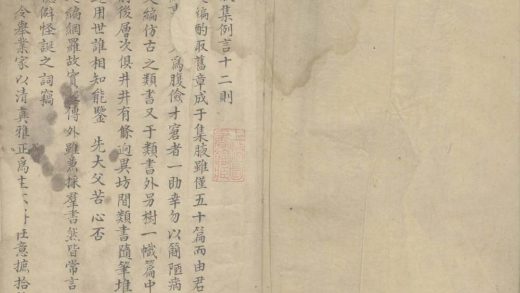 集例言十二則
編酌取舊章成于集腋雖僅五十篇而由君
為腹儉才窘者一助幸勿以簡陋病
編仿古之類書又于類書外另樹一幟篇中
前後層次俱井井有條逈異坊間類書隨筆堆
運用世誰相知能鑒 先大父苦心否
編網羅故實經傳外雖兼採羣書然皆常言
僻怪誕之詞竊
今舉業家以清真雅正為主不得任意摭拾